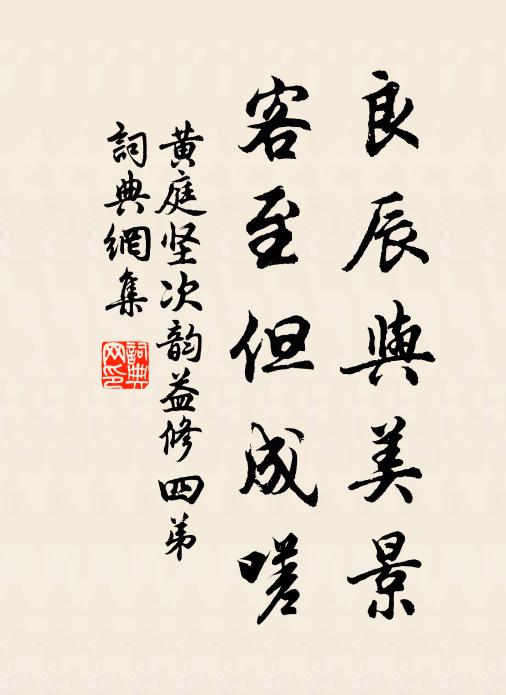 良辰與美景
客至但成嗟
黄庭坚次韵益修四弟
詞典網集
詞典網印